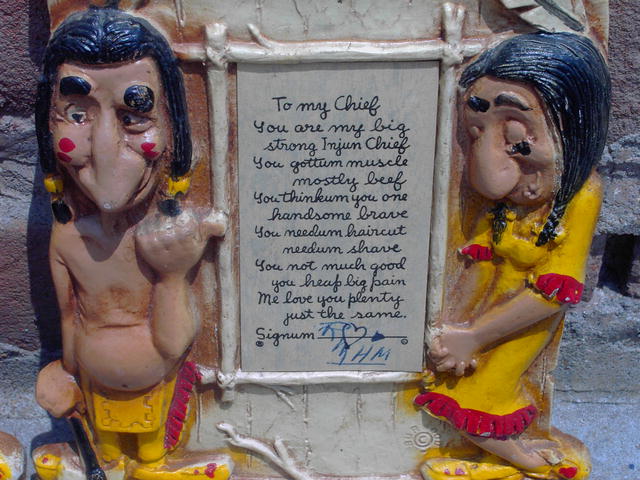 To my Chief
You are my big
strong Injun Chief
You gottum muscle
mostly beef
You thinkum you one
handsome brave
You needum haircut
needum shave
You not much good
you heap big pain
Me love you plenty
just the same.
Signum